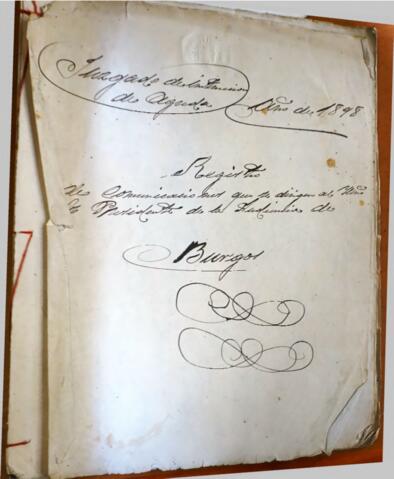 Juzgado de Instrucción
de Agreda Año de 1898
Registro
de Comunicaciones que se dirigen al
Presidente de la Audiencia de
Burgos